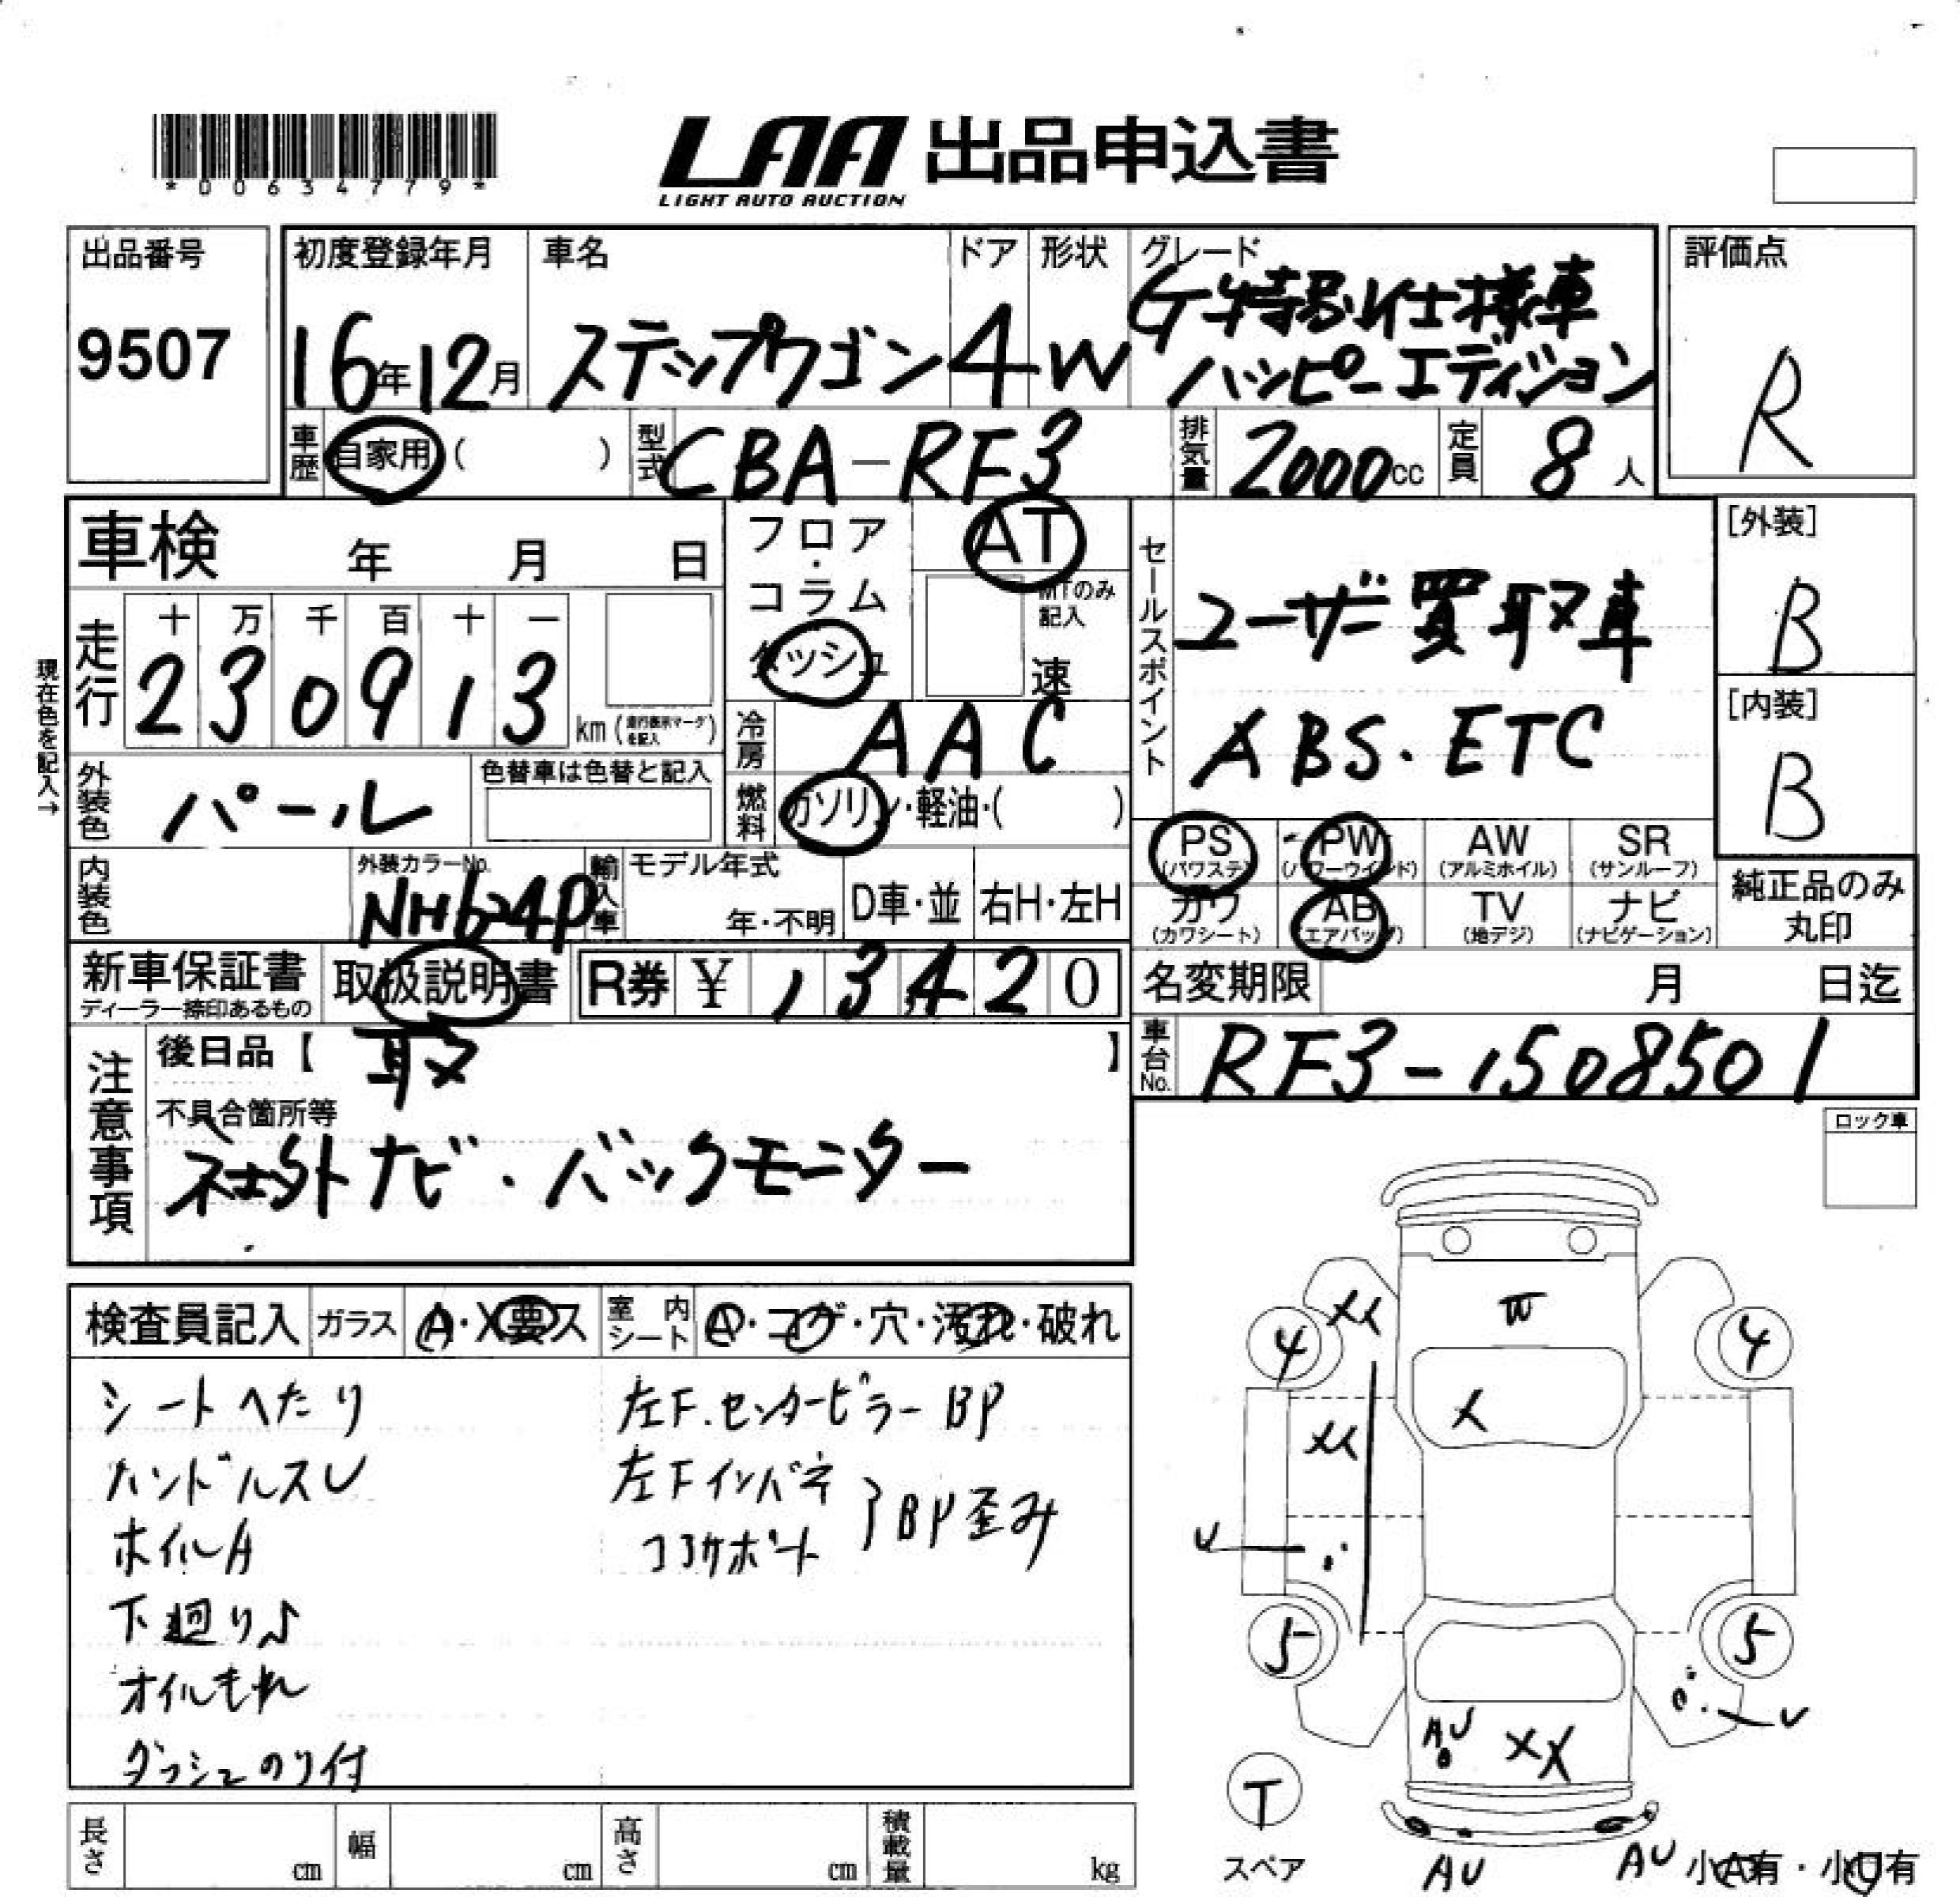 *00634779*
LAA 出品申込書
LIGHT AUTO AUCTION
出品番号
9507
初度登録年月
16年12月
車名
ステップワゴン
ドア
4
形状
W
グレード
G特別仕様車
ハッピーエディション
評価点
R
車歴 自家用 ( )
型式 CBA-RF3
排気量 2000cc
定員 8人
車検 年 月 日
フロア・コラム
ダッシュ
AT
MTのみ記入
速
セールスポイント
ユーザー買取車
ABS.ETC
[外装]
B
[内装]
B
現在色を記入→
走行
十 万 千 百 十 一
2 3 0 9 1 3 km (走行表示マークを記入)
冷房 AAC
外装色 パール
色替車は色替と記入
燃料 ガソリン・軽油・( )
PS (パワステ)
PW (パワーウインド)
AW (アルミホイル)
SR (サンルーフ)
カワ (カワシート)
AB (エアバッグ)
TV (地デジ)
ナビ (ナビゲーション)
純正品のみ丸印
内装色
外装カラーNo.
NH624P
輸入車
モデル年式
年・不明
D車・並
右H・左H
新車保証書
ディーラー捺印あるもの
取扱説明書
R券 ¥ 13420
名変期限 月 日迄
車台No. RF3-1508501
注意事項
後日品【 取 】
不具合箇所等
社外ナビ・バックモニター
ロック車
検査員記入
ガラス A・X要ス
室内シート A・コゲ・穴・汚れ・破れ
シートへたり
ハンドルスレ
ホイルA
下廻りS
オイルもれ
ダッシュのり付
左F.センターピラーBP
左Fインパネ
コアサポート
BP歪み
XU
W
4
4
X
XU
U
5
5
U
AU
XX
T
スペア
AU
AU
小A有・小U有
長さ cm
幅 cm
高さ cm
積載量 kg